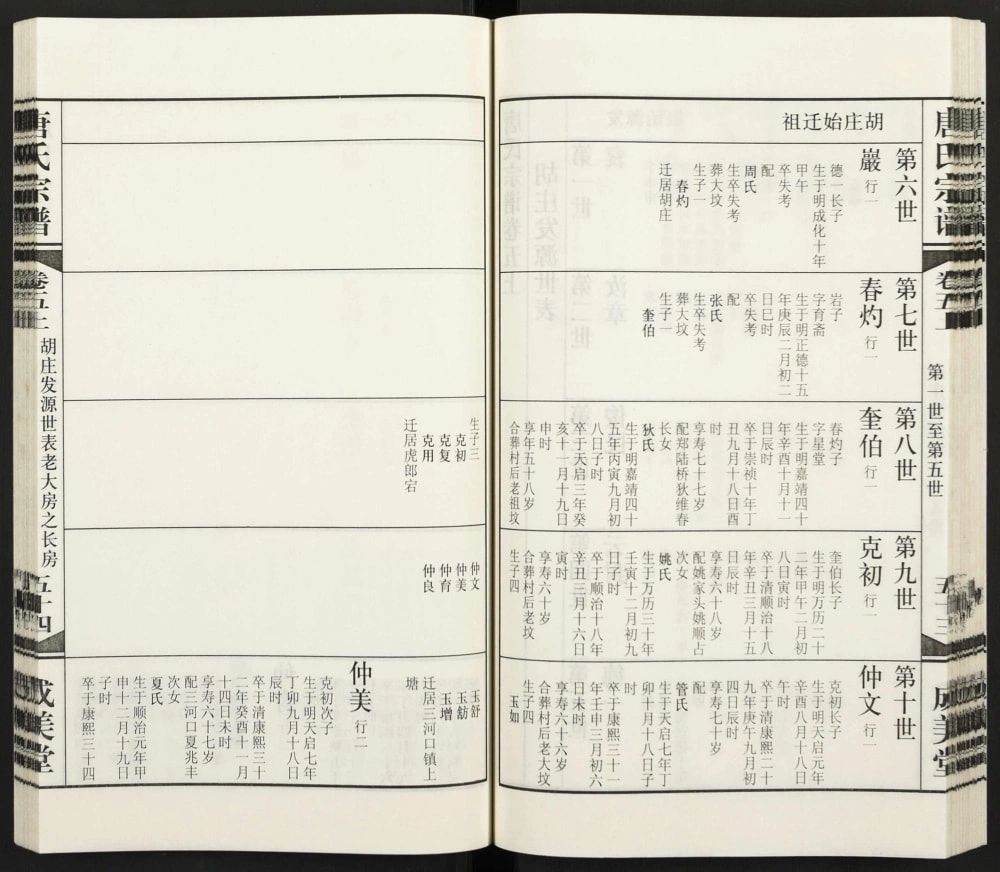 胡庄始迁祖
第六世
巖 行一
德一长子
生于明成化十年
甲午
卒失考
配
周氏
生卒失考
葬大坟
生子一
春灼
迁居胡庄
第七世
春灼 行一
岩子
字育斋
生于明正德十五
年庚辰二月初二
日巳时
卒失考
配
张氏
生卒失考
葬大坟
生子一
奎伯
第八世
奎伯 行一
春灼子
字星堂
生于明嘉靖四十
年辛酉十月十一
日辰时
卒于崇祯十年丁
丑九月十八日酉
时
享寿七十七岁
配郑陆桥狄维春
长女
狄氏
生于明嘉靖四十
五年丙寅九月初
八日子时
卒于天启三年癸
亥十一月十九日
申时
享年五十八岁
合葬村后老祖坟
第九世
克初 行一
奎伯长子
生于明万历二十
二年甲午二月初
八日寅时
卒于清顺治十八
年辛丑三月十五
日辰时
享寿六十八岁
配姚家头姚顺占
次女
姚氏
生于万历三十年
壬寅十二月初九
日子时
卒于顺治十八年
辛丑三月十六日
寅时
享寿六十岁
合葬村后老坟
生子四
第十世
仲文 行一
克初长子
生于明天启元年
辛酉八月十八日
午时
卒于清康熙二十
九年庚午九月初
四日辰时
享寿七十岁
配
管氏
生于天启七年丁
卯十月十八日子
时
卒于康熙三十一
年壬申三月初六
日未时
享寿六十六岁
合葬村后老大坟
生子四
玉如
唐氏宗谱
卷五上
第一世至第五世
五十三
成美堂
生子三
克初
克复
克用
迁居虎郎宕
仲文
仲美
仲育
仲良
玉舒
玉舫
玉增
迁居三河口镇上
塘
仲美 行二
克初次子
生于明天启七年
丁卯九月十八日
辰时
卒于清康熙三十
二年癸酉十一月
十四日未时
享寿六十七岁
配三河口夏兆丰
次女
夏氏
生于顺治元年甲
申十二月十九日
子时
卒于康熙三十四
唐氏宗谱
卷五上
胡庄发源世表老大房之长房
五十四
成美堂